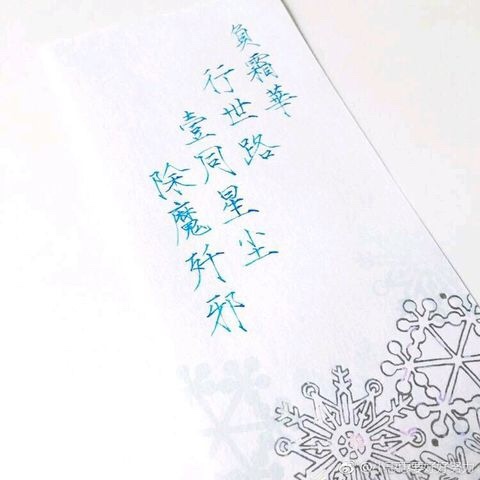 負霜華
行世路
壹同星尘
除魔歼邪